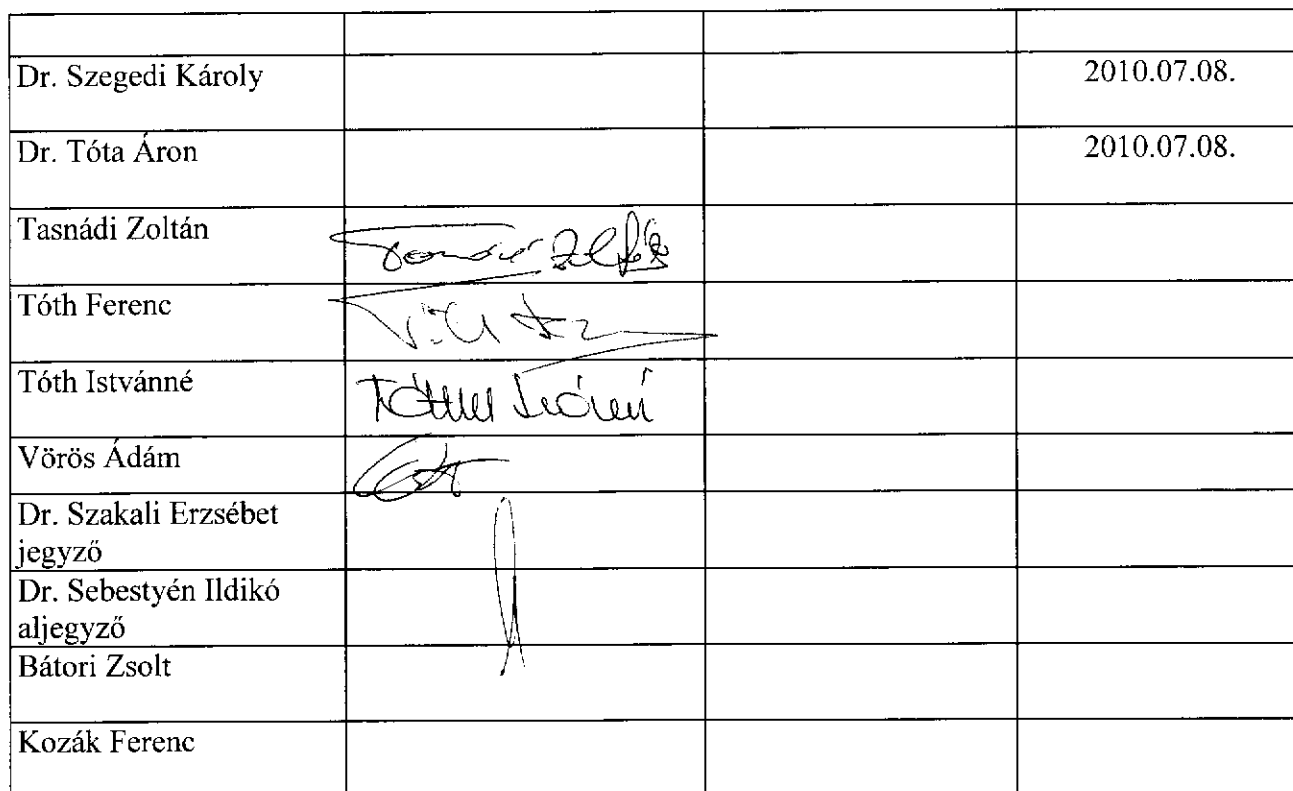 Dr. Szegedi Károly 2010.07.08.
Dr. Tóta Áron 2010.07.08.
Tasnádi Zoltán
Tóth Ferenc
Tóth Istvánné
Vörös Ádám
Dr. Szakali Erzsébet
jegyző
Dr. Sebestyén Ildikó
aljegyző
Bátori Zsolt
Kozák Ferenc